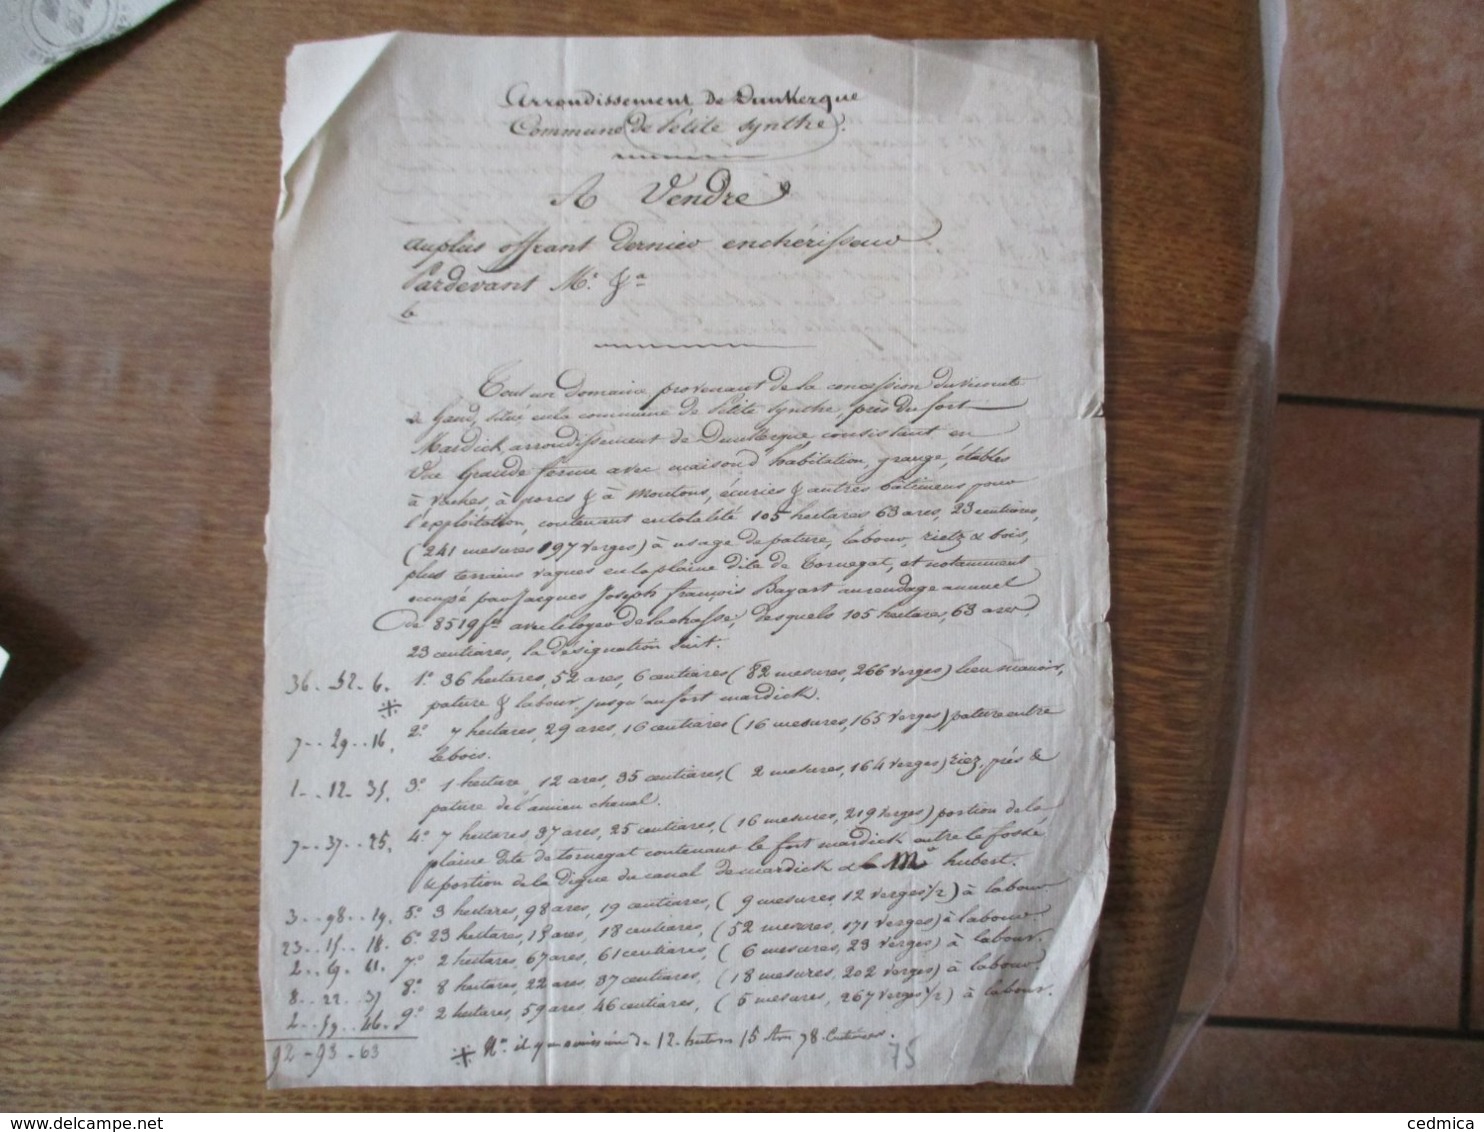 Arrondissement de Dunkerque
Commune de Petite Synthe.
A Vendre
au plus offrant dernier enchérisseur
Pardevant Me &a
Tout un Domaine provenant de la concession du vicomte
de Gand, situé en la commune de Petite Synthe, près du fort
Mardick, arrondissement de Dunkerque, consistant en
Une Grande ferme avec maison d'habitation, grange, étables
à vaches, à porcs & à moutons, écuries & autres bâtimens pour
l'exploitation, contenant en totalité 105 hectares 63 ares, 23 centiares,
(241 mesures 197 verges) à usage de pature, labour, rietz & bois,
plus terrains vagues en la plaine dite de Tornegat, et notamment
occupé par Jacques Joseph françois Bayart au rendage annuel
de 8519 fr avec le loyer de la chasse, desquels 105 hectare, 63 ares,
23 centiares, la désignation suit.
36-52-6. 1º 36 hectares, 52 ares, 6 centiares (82 mesures, 266 verges) lieu manoir,
※ pature & labour, jusqu'au fort mardick.
7--29--16, 2º 7 hectares, 29 ares, 16 centiares (16 mesures, 165 verges) pature entre
le bois.
1--12-35, 3º 1 hectare, 12 ares, 35 centiares, (2 mesures, 164 verges) riez, près &
pature de l'ancien chenal.
7--37--25, 4º 7 hectares, 37 ares, 25 centiares, (16 mesures, 219 verges) portion de la
plaine dite de tornegat contenant le fort mardick entre le fossé,
& portion de la Digue du canal de mardick & le Mn hubert.
3--98--19. 5º 3 hectares, 98 ares, 19 centiares, (9 mesures, 12 verges 1/2) à labour
23--15--18. 6º 23 hectares, 15 ares, 18 centiares, (52 mesures, 171 verges) à labour
2--67-61. 7º 2 hectares, 67 ares, 61 centiares, (6 mesures, 23 verges) à labour.
8--22--37 8º 8 hectares, 22 ares, 37 centiares, (18 mesures, 202 verges) à labour.
2--59--46. 9º 2 hectares, 59 ares, 46 centiares, (5 mesures, 267 verges 1/2) à labour.
92-93-63
※ Na il y a omission de 12 hectares 15 Ares 78 Centiares.
75
cedmica
www.delcampe.net